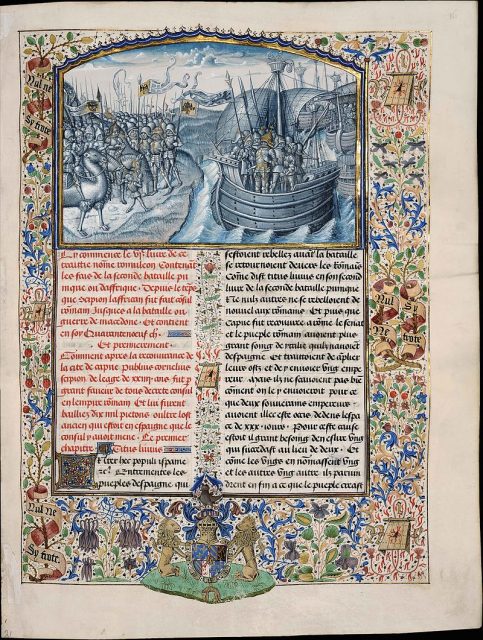 Cy commence le livre de ce
traittie nõme romuleon Contenãt
les fais de la seconde bataille pu
nique ou daffrique · Depuis le tẽps
que Scipion laffrican fut fait cõsul
romain Jusques a la bataille ou
guerre de macedone · et contient
en soy Quarantenoeuf
Et premierement ·
Comment apres la recouvrance de
la cite de capue publius cornelius
scipion de leage de xxiiij ans fut
grant faveur de tous decrete consul
en lempire romain · Et lui furent
bailliez dix mil pietons oultre lost
ancien qui estoit en espaigne que le
consul y avoit mene · Ce premier
chapitre · Titus livius
populi
Entrementes les
pueples despaigne qui
sestoient rebellez avãt la bataille
se retournoient devers les rõmains
Cõme dist titus livius en son second
livre de la seconde bataille punique
Ne nulz autres ne se rebelloient de
nouvel aux romains · Et puis que
Capue fut recouvree a rõme le senat
et le pueple romain avoient plus
grant soing de ytalie quilz navoiẽt
despaigne · Et traittoient de
leurs ostz et de y envoier ung empe
reur · Mais ilz ne scavoient pas biẽ
cõment on le y envoieroit pour ce
que deux souverains empereurs
avoient illec este occis dedens lespa
ce de xxx iours · Pour ceste cause
estoit il grant besoing den eslire ung
qui succedast au lieu de deux · Et
cõme les ungs en nõmassent ung
et les autres ung autre ilz parvin
drent en fin a ce que le pueple creast
Nul ne
sy frote
Nul
Sy
ne
frote
Nul ne
Sy frote